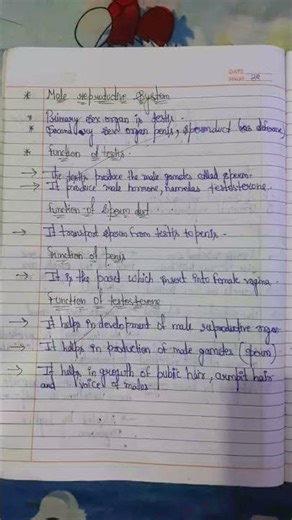 DATE
PAGE 28
* Male reproductive System
* Primary sex organ is testis.
* Secondary sex organ penis, spermduct (vas deferens)
* Function of testis.
→ The testis produce the male gametes called sperm.
→ It produce male hormone, namelas testosterone.
Function of sperm duct.
→ It transport sperm from testis to penis.
Function of penis
→ It is the part which insert into female vagina.
Function of testosterone
→ It helps in development of male reproductive organ.
→ It helps in production of male gametes (sperm)
→ It helps in growth of pubic hair, armpit hair
and voice of males